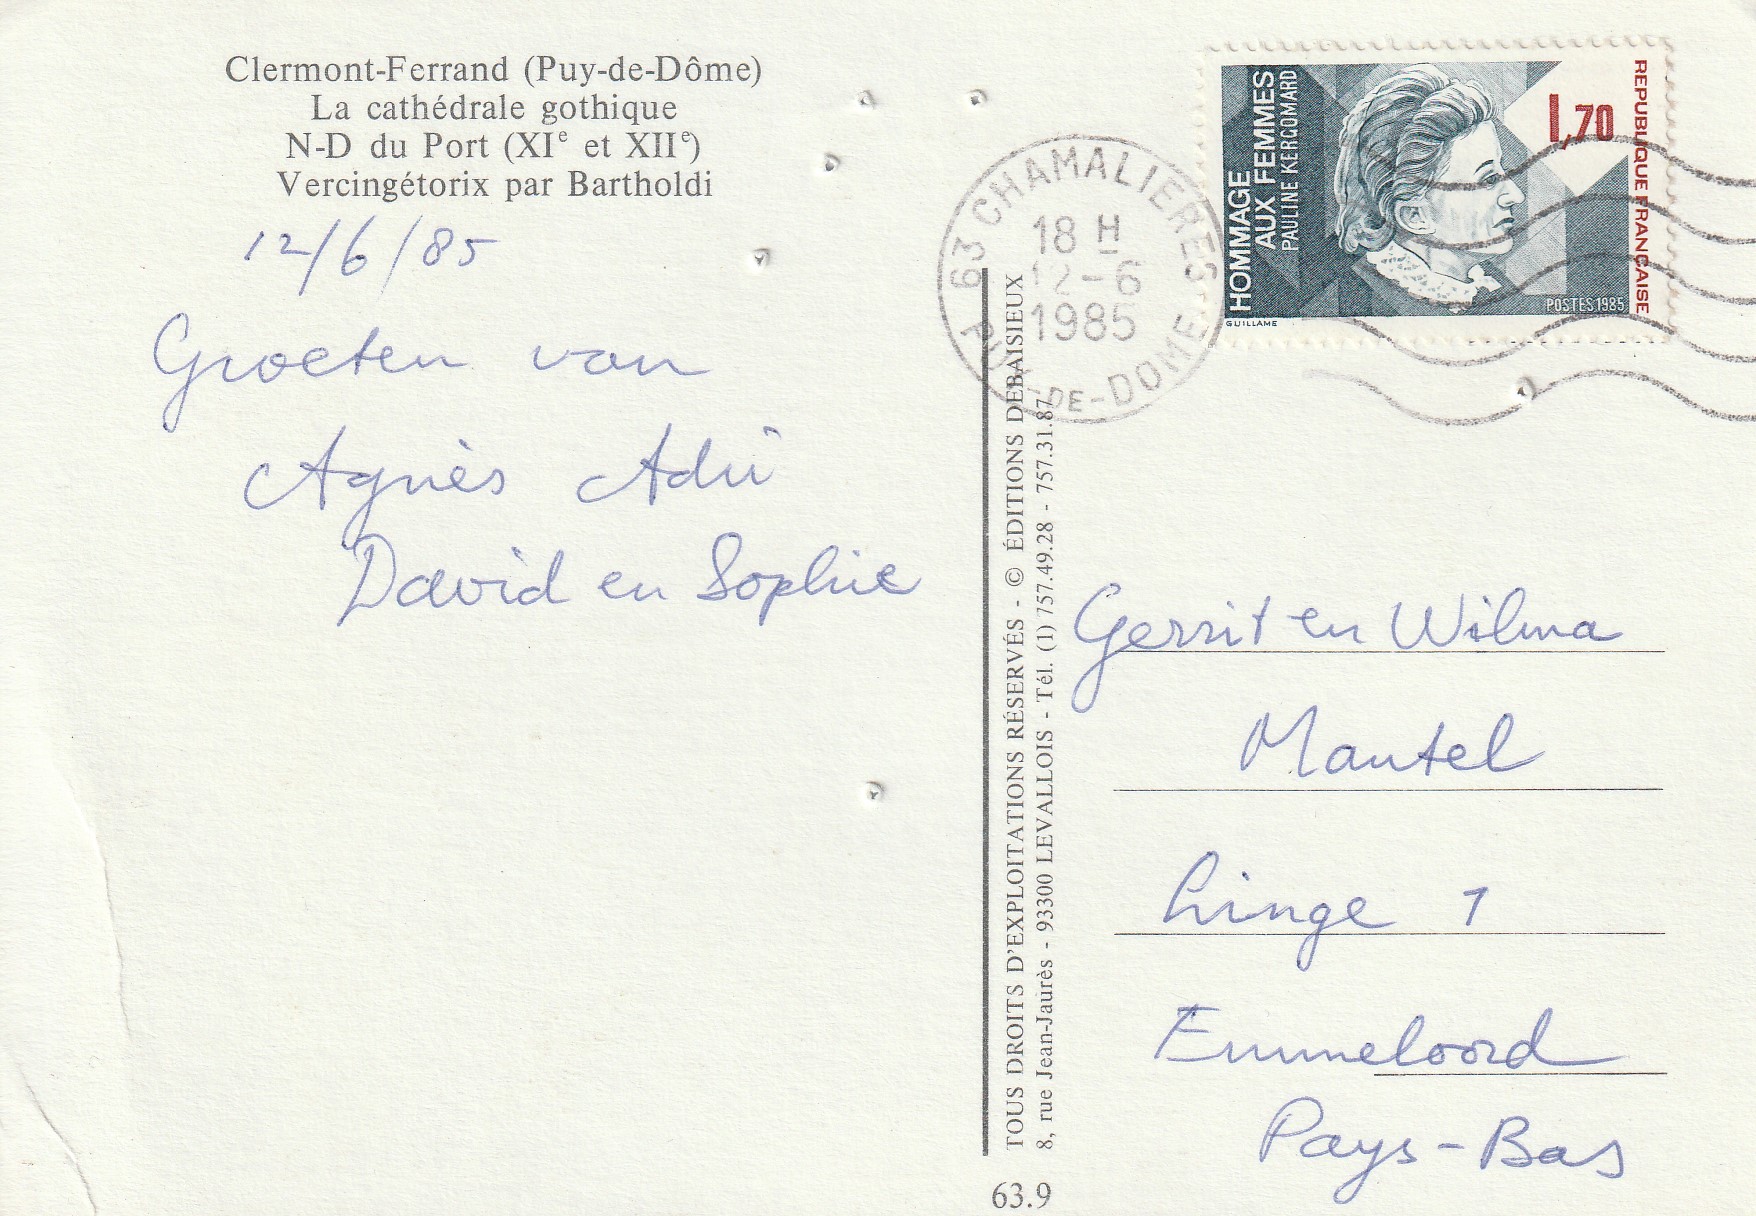 Clermont-Ferrand (Puy-de-Dôme)
La cathédrale gothique
N-D du Port (XIe et XIIe)
Vercingétorix par Bartholdi
12/6/85
Groeten van
Agnès Adri
David en Sophie
63 CHAMALIERES
18 H
12-6
1985
PUY-DE-DOME
HOMMAGE
AUX FEMMES
PAULINE KERGOMARD
1,70
REPUBLIQUE FRANCAISE
POSTES 1985
GUILLAME
TOUS DROITS D'EXPLOITATIONS RÉSERVÉS - © ÉDITIONS DEBAISIEUX
8, rue Jean-Jaurès - 93300 LEVALLOIS - Tél. (1) 757.49.28 - 757.31.87
63.9
Gerrit en Wilma
Mantel
Linge 1
Emmeloord
Pays-Bas